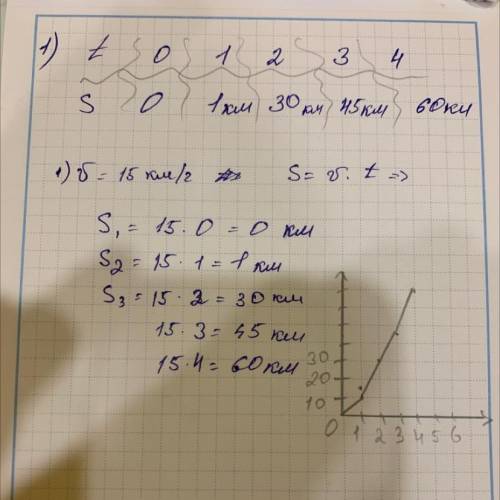 1) t 0 1 2 3 4
S 0 1 км 30 км 45 км 60 км
1) v = 15 км/г S = v · t =>
S₁ = 15 · 0 = 0 км
S₂ = 15 · 1 = 1 км
S₃ = 15 · 2 = 30 км
15 · 3 = 45 км
15 · 4 = 60 км
30
20
10
0 1 2 3 4 5 6